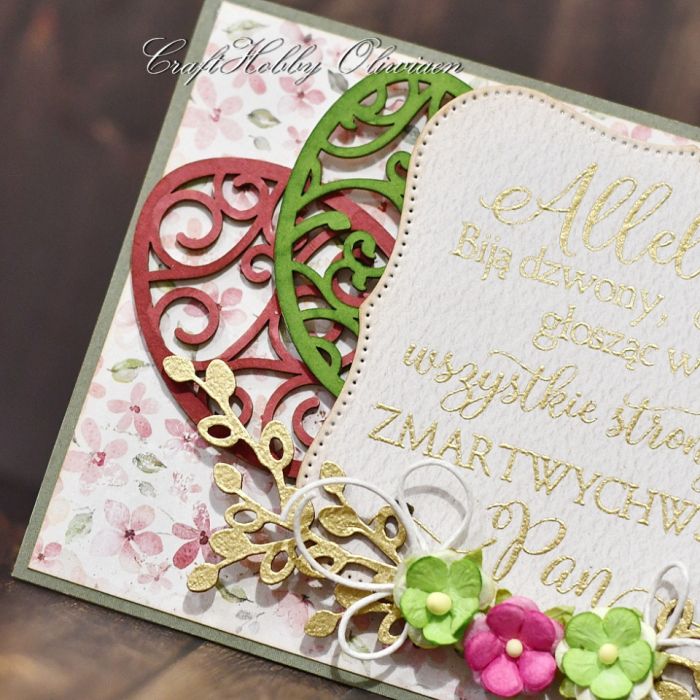 CraftHobby Oliwiaen
Allel
Biją dzwony,
głosząc w
wszystkie stron
ZMARTWYCHW
Pan